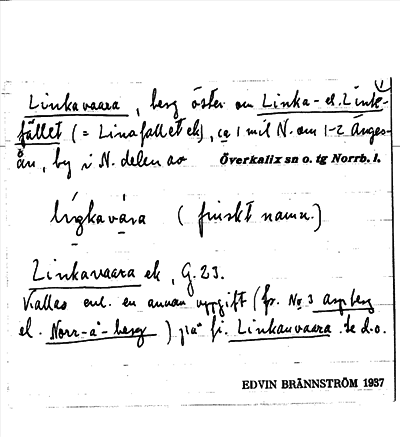 1
Linkavaara, berg öster om Linka- el. Link-
fället (= Linafallet ek), ca 1 mil N. om 1-2 Änges-
ån, by i N. delen av Överkalix sn o. tg Norrb. l.
lìgkavára (finskt namn.)
Linkavaara ek, G. 23.
Kallas enl. en annan uppgift (fr. No 3 Aspberg
el. Norr-å-berg) på fi. Linkanvaara. Se d.o.
EDVIN BRÄNNSTRÖM 1937